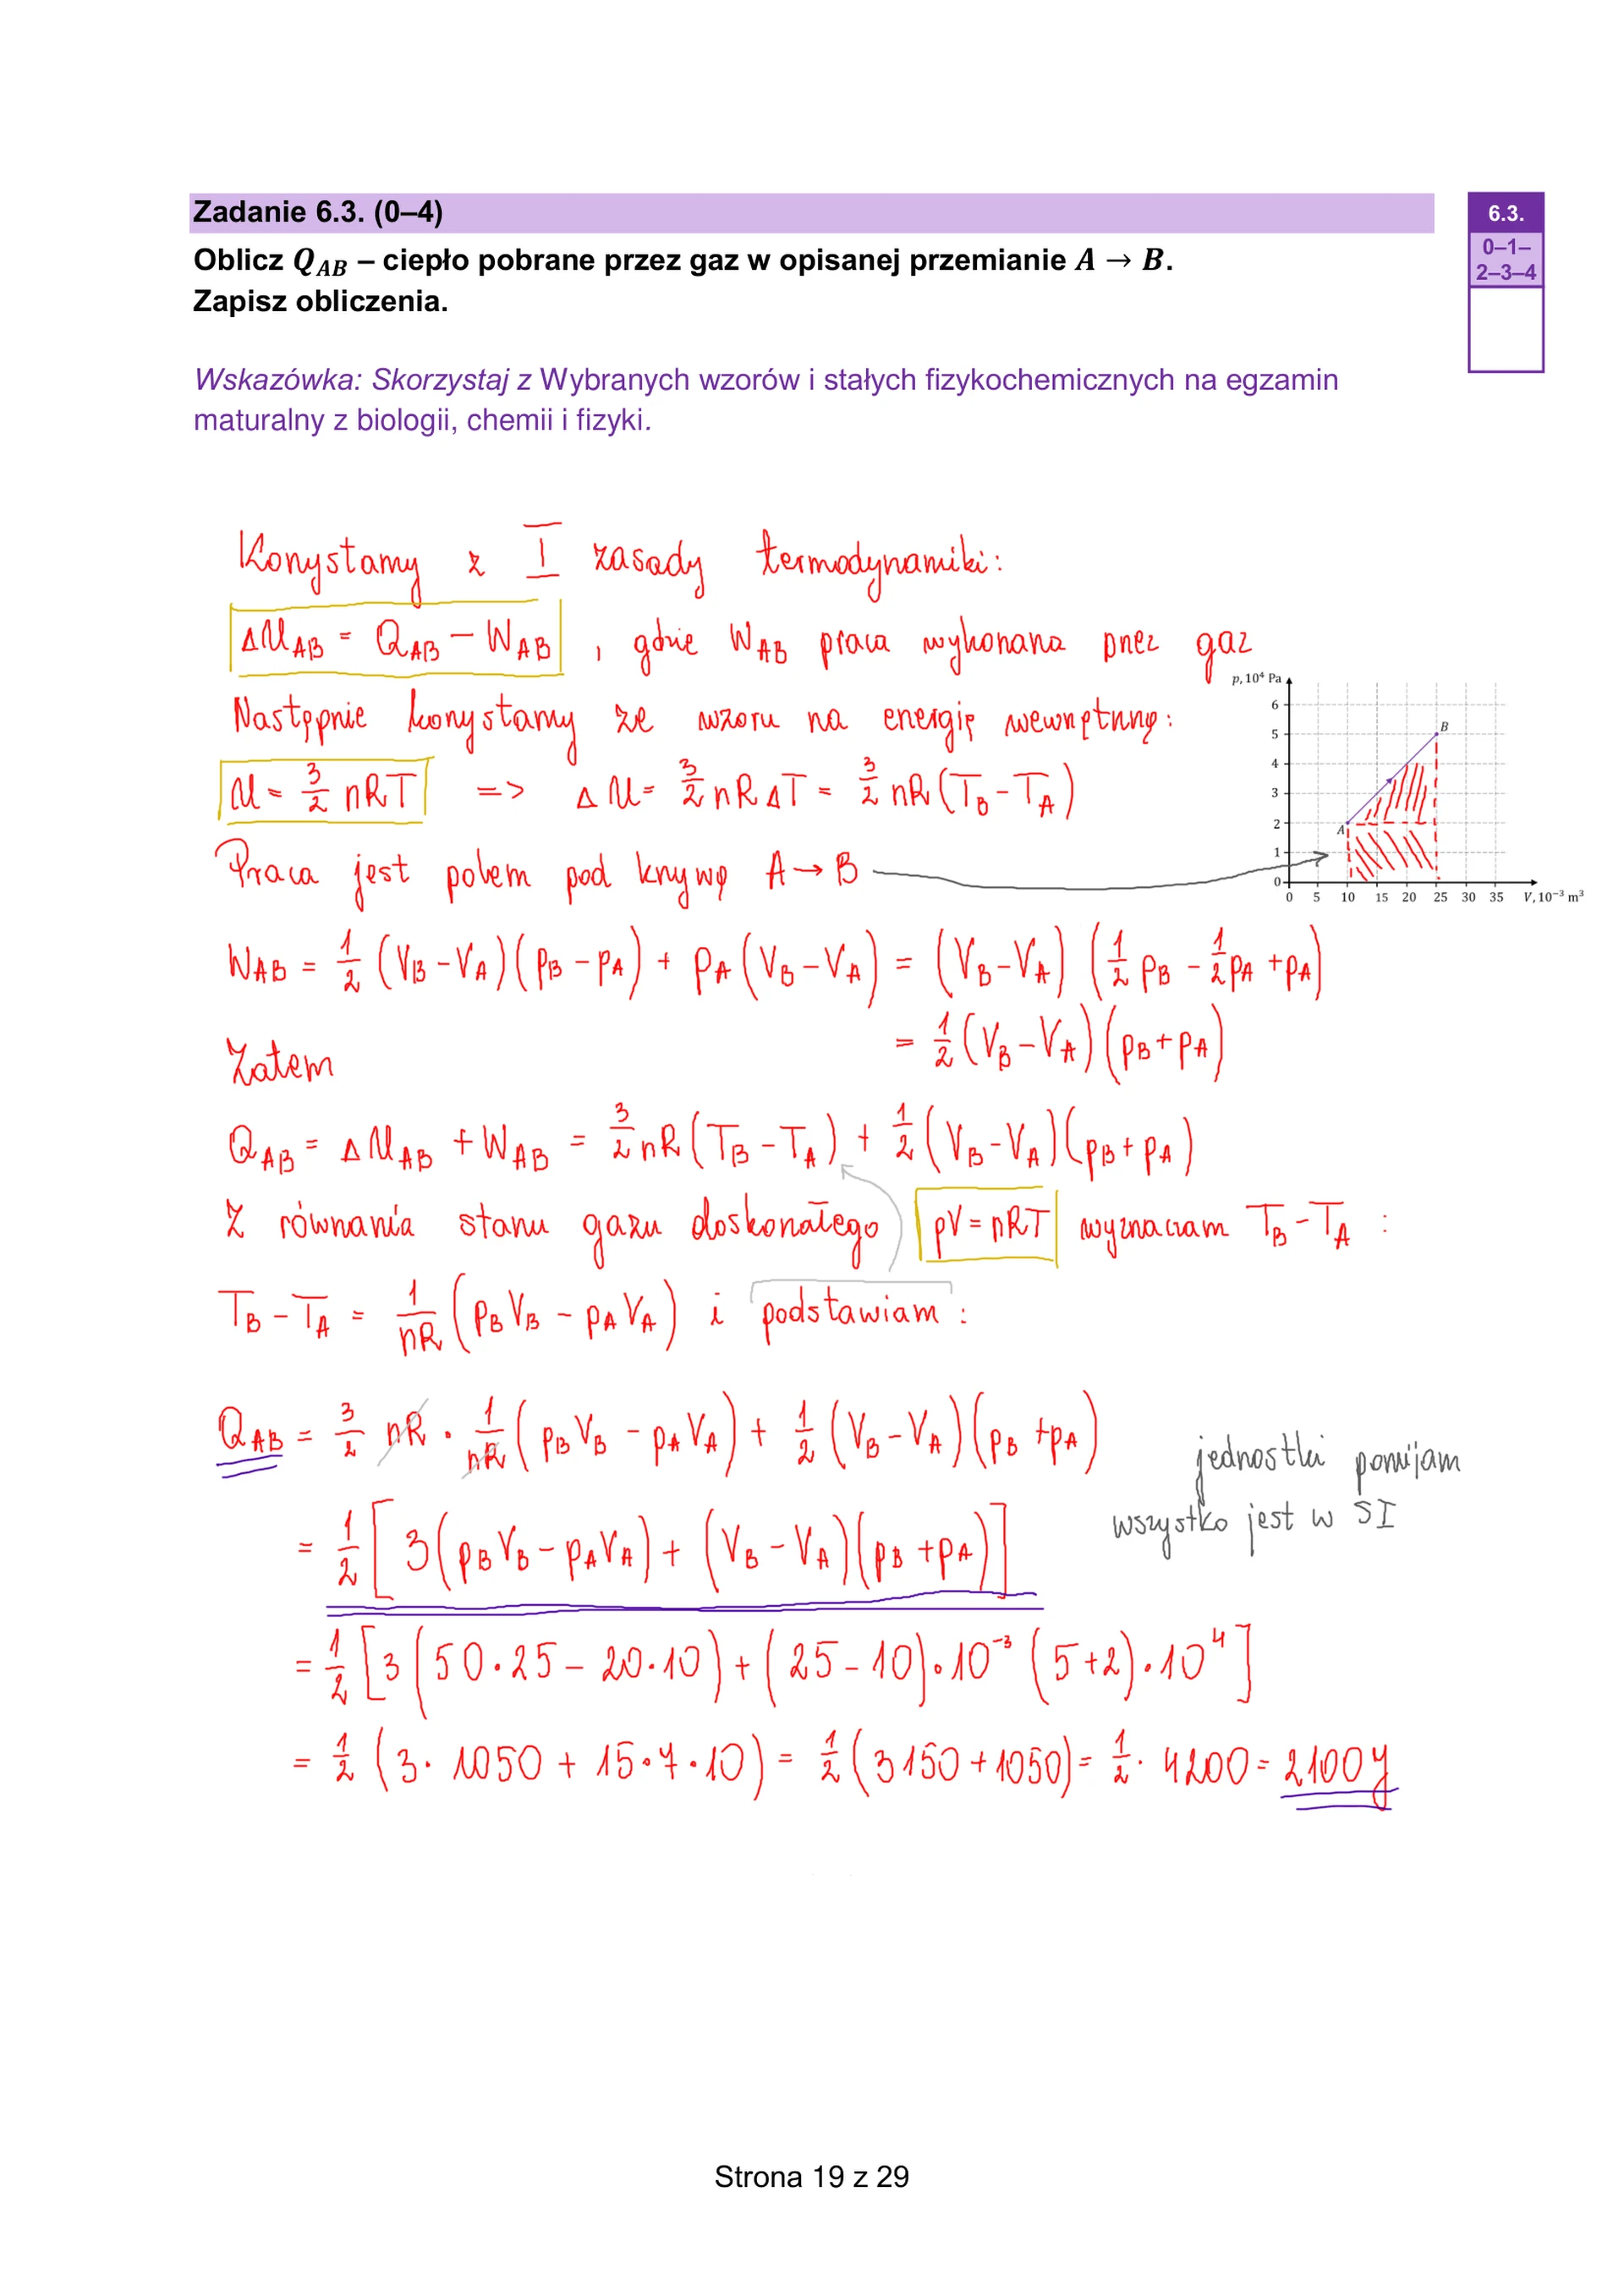 Zadanie 6.3. (0–4)
6.3.
0–1–
2–3–4
Oblicz Q_AB – ciepło pobrane przez gaz w opisanej przemianie A → B.
Zapisz obliczenia.
Wskazówka: Skorzystaj z Wybranych wzorów i stałych fizykochemicznych na egzamin
maturalny z biologii, chemii i fizyki.
Korzystamy z I zasady termodynamiki:
ΔU_AB = Q_AB − W_AB , gdzie W_AB praca wykonana przez gaz
Następnie korzystamy ze wzoru na energię wewnętrzną:
U = 3/2 nRT => ΔU = 3/2 nRΔT = 3/2 nR (T_B − T_A)
Praca jest polem pod krzywą A → B
p, 10⁴ Pa
6
5
4
3
2
1
0
B
A
0 5 10 15 20 25 30 35 V, 10⁻³ m³
W_AB = 1/2 (V_B − V_A)(p_B − p_A) + p_A (V_B − V_A) = (V_B − V_A) (1/2 p_B − 1/2 p_A + p_A)
= 1/2 (V_B − V_A)(p_B + p_A)
Zatem
Q_AB = ΔU_AB + W_AB = 3/2 nR (T_B − T_A) + 1/2 (V_B − V_A)(p_B + p_A)
Z równania stanu gazu doskonałego pV = nRT wyznaczam T_B − T_A :
T_B − T_A = 1/nR (p_B V_B − p_A V_A) i podstawiam :
Q_AB = 3/2 nR · 1/nR (p_B V_B − p_A V_A) + 1/2 (V_B − V_A)(p_B + p_A)
jednostki pomijam
wszystko jest w SI
= 1/2 [ 3 (p_B V_B − p_A V_A) + (V_B − V_A)(p_B + p_A) ]
= 1/2 [ 3 (50·25 − 20·10) + (25 − 10)·10⁻³ (5+2)·10⁴ ]
= 1/2 (3· 1050 + 15·7·10) = 1/2 (3150 + 1050) = 1/2 · 4200 = 2100 J
Strona 19 z 29